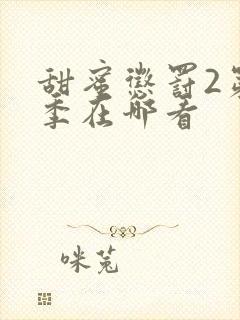 甜蜜惩罚2第
季在哪看
咪菟